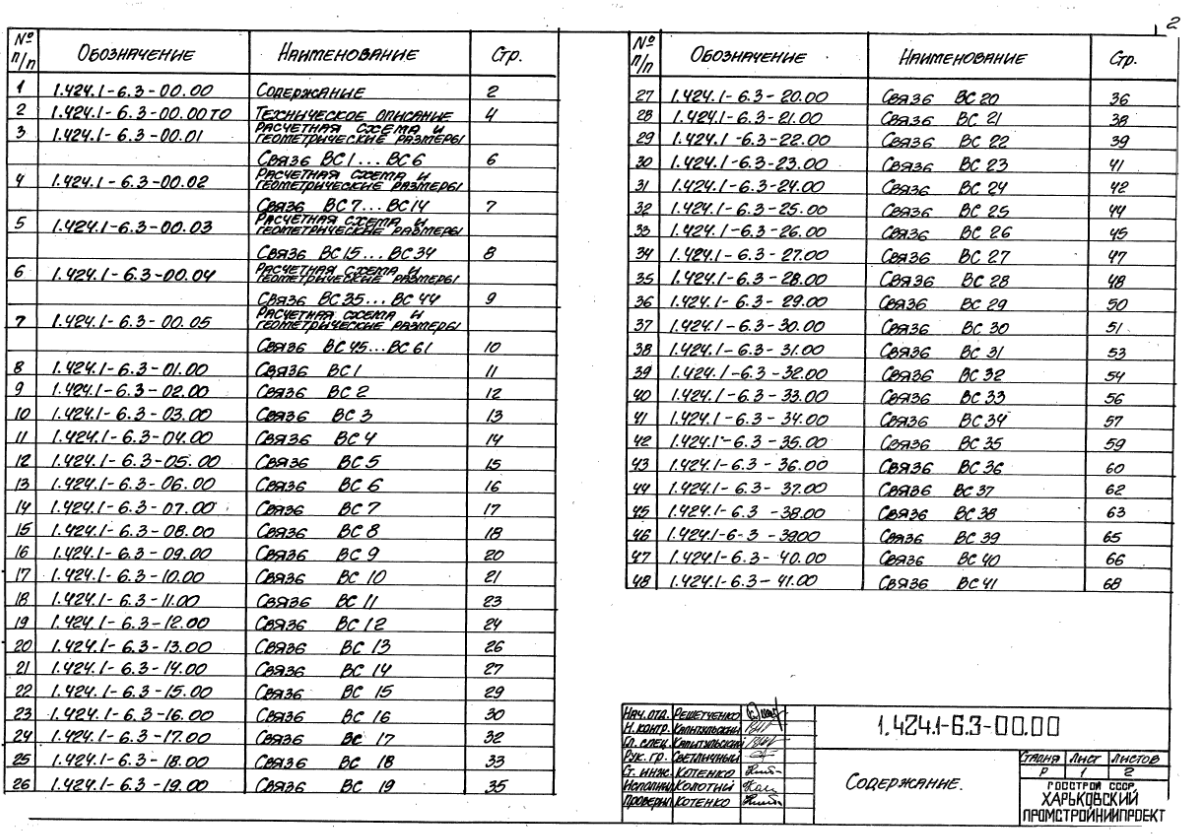 2
№ п/п Обозначение Наименование Стр.
1 1.424.1-6.3-00.00 Содержание 2
2 1.424.1-6.3-00.00ТО Техническое описание 4
3 1.424.1-6.3-00.01 Расчетная схема и
геометрические размеры
Связь ВС1...ВС6 6
4 1.424.1-6.3-00.02 Расчетная схема и
геометрические размеры
Связь ВС7...ВС14 7
5 1.424.1-6.3-00.03 Расчетная схема и
геометрические размеры
Связь ВС15...ВС34 8
6 1.424.1-6.3-00.04 Расчетная схема и
геометрические размеры
Связь ВС35...ВС44 9
7 1.424.1-6.3-00.05 Расчетная схема и
геометрические размеры
Связь ВС45...ВС61 10
8 1.424.1-6.3-01.00 Связь ВС1 11
9 1.424.1-6.3-02.00 Связь ВС2 12
10 1.424.1-6.3-03.00 Связь ВС3 13
11 1.424.1-6.3-04.00 Связь ВС4 14
12 1.424.1-6.3-05.00 Связь ВС5 15
13 1.424.1-6.3-06.00 Связь ВС6 16
14 1.424.1-6.3-07.00 Связь ВС7 17
15 1.424.1-6.3-08.00 Связь ВС8 18
16 1.424.1-6.3-09.00 Связь ВС9 20
17 1.424.1-6.3-10.00 Связь ВС10 21
18 1.424.1-6.3-11.00 Связь ВС11 23
19 1.424.1-6.3-12.00 Связь ВС12 24
20 1.424.1-6.3-13.00 Связь ВС13 26
21 1.424.1-6.3-14.00 Связь ВС14 27
22 1.424.1-6.3-15.00 Связь ВС15 29
23 1.424.1-6.3-16.00 Связь ВС16 30
24 1.424.1-6.3-17.00 Связь ВС17 32
25 1.424.1-6.3-18.00 Связь ВС18 33
26 1.424.1-6.3-19.00 Связь ВС19 35
№ п/п Обозначение Наименование Стр.
27 1.424.1-6.3-20.00 Связь ВС20 36
28 1.424.1-6.3-21.00 Связь ВС21 38
29 1.424.1-6.3-22.00 Связь ВС22 39
30 1.424.1-6.3-23.00 Связь ВС23 41
31 1.424.1-6.3-24.00 Связь ВС24 42
32 1.424.1-6.3-25.00 Связь ВС25 44
33 1.424.1-6.3-26.00 Связь ВС26 45
34 1.424.1-6.3-27.00 Связь ВС27 47
35 1.424.1-6.3-28.00 Связь ВС28 48
36 1.424.1-6.3-29.00 Связь ВС29 50
37 1.424.1-6.3-30.00 Связь ВС30 51
38 1.424.1-6.3-31.00 Связь ВС31 53
39 1.424.1-6.3-32.00 Связь ВС32 54
40 1.424.1-6.3-33.00 Связь ВС33 56
41 1.424.1-6.3-34.00 Связь ВС34 57
42 1.424.1-6.3-35.00 Связь ВС35 59
43 1.424.1-6.3-36.00 Связь ВС36 60
44 1.424.1-6.3-37.00 Связь ВС37 62
45 1.424.1-6.3-38.00 Связь ВС38 63
46 1.424.1-6-3-3900 Связь ВС39 65
47 1.424.1-6.3-40.00 Связь ВС40 66
48 1.424.1-6.3-41.00 Связь ВС41 68
Нач. отд. Решетченко
Н. контр. Капитульский
Гл. спец. Капитульский
Рук. гр. Светличный
Ст. инж. Котенко
Исполнил Колотий
Проверил Котенко
1.424.1-6.3-00.00
Содержание.
Стадия Лист Листов
Р 1 2
Госстрой СССР
ХАРЬКОВСКИЙ
ПРОМСТРОЙНИИПРОЕКТ